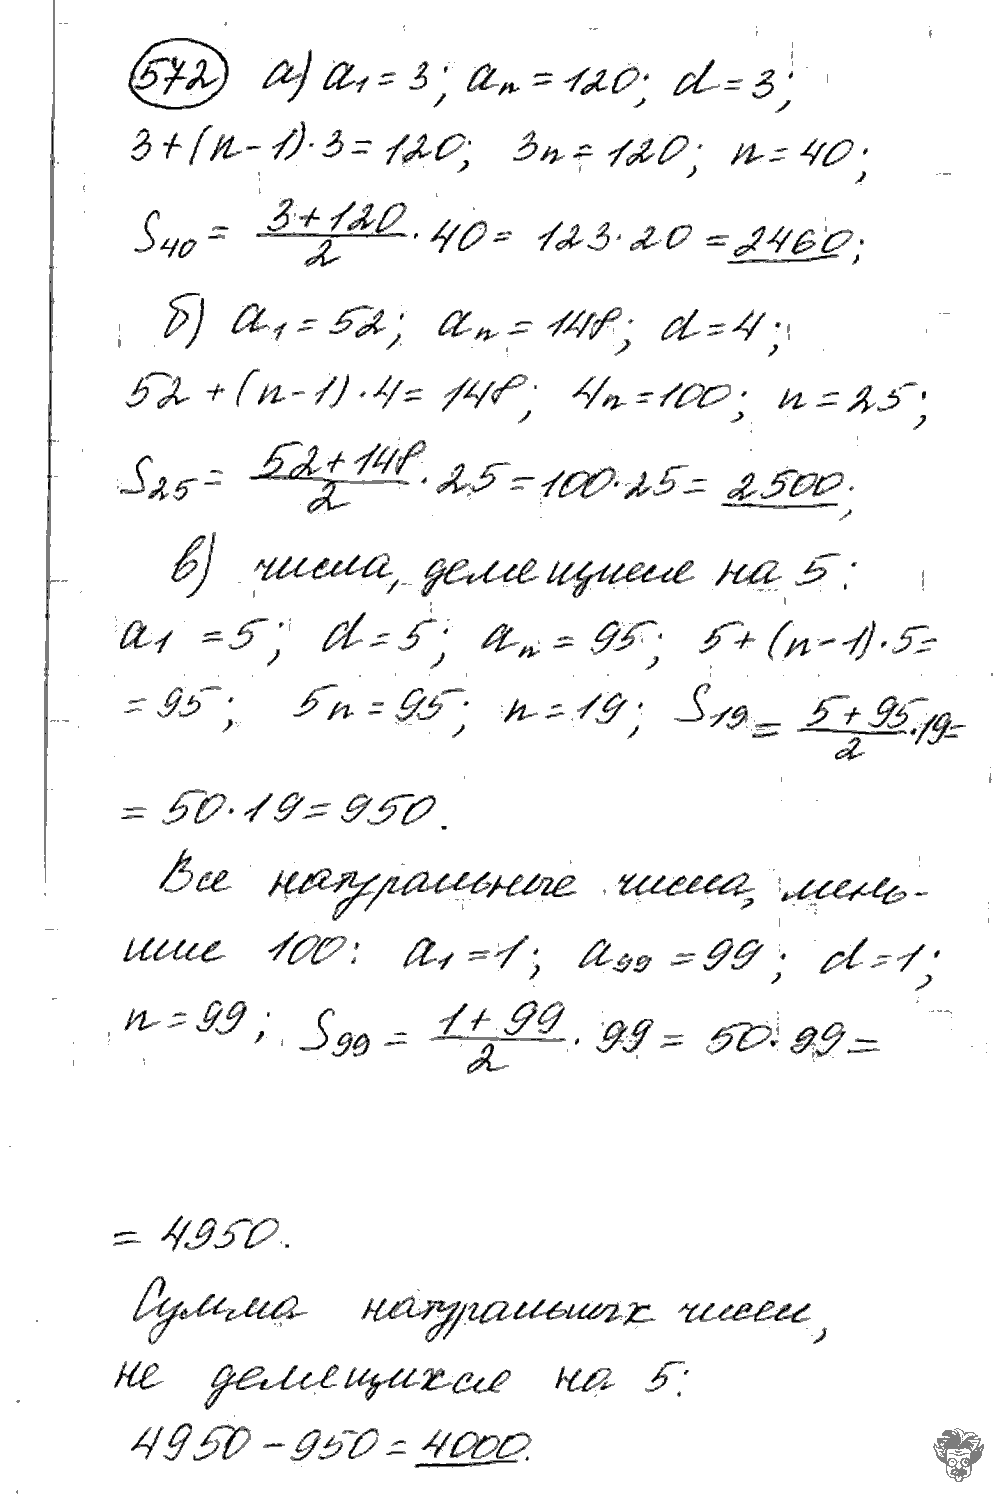 572 а) a₁ = 3; aₙ = 120; d = 3;
3 + (n − 1) · 3 = 120; 3n = 120; n = 40;
S₄₀ = (3 + 120)/2 · 40 = 123 · 20 = 2460;
б) a₁ = 52; aₙ = 148; d = 4;
52 + (n − 1) · 4 = 148; 4n = 100; n = 25;
S₂₅ = (52 + 148)/2 · 25 = 100 · 25 = 2500;
в) числа, делящиеся на 5:
a₁ = 5; d = 5; aₙ = 95; 5 + (n − 1) · 5 =
= 95; 5n = 95; n = 19; S₁₉ = (5 + 95)/2 · 19 =
= 50 · 19 = 950.
Все натуральные числа, мень-
шие 100: a₁ = 1; a₉₉ = 99; d = 1;
n = 99; S₉₉ = (1 + 99)/2 · 99 = 50 · 99 =
= 4950.
Сумма натуральных чисел,
не делящихся на 5:
4950 − 950 = 4000.